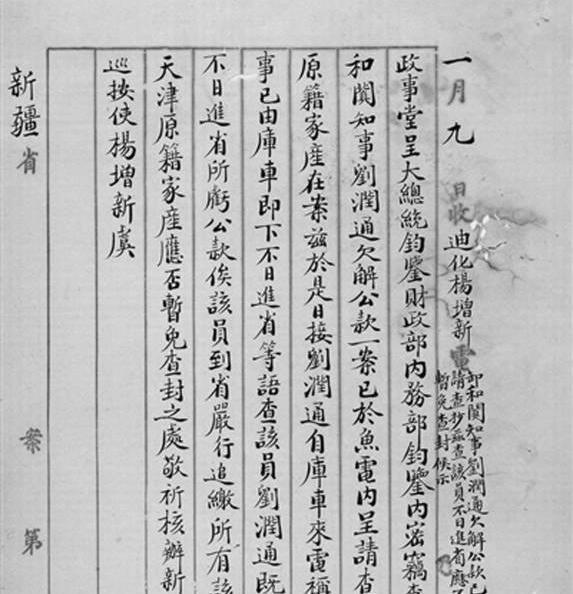 一月九日收迪化楊增新電
卸和闐知事劉潤通欠解公款已
請查抄茲查該員不日進省應
暫免查封候示
政事堂呈大總統鈞鑒財政部內務部鈞鑒內密竊查
和闐知事劉潤通欠解公款一案已於魚電內呈請查
原籍家產在案茲於是日接劉潤通自庫車來電稱
事已由庫車即下不日進省等語查該員劉潤通既
不日進省所虧公款俟該員到省嚴行追繳所有該
天津原籍家產應否暫免查封之處敬祈核辦新
巡按使楊增新虞
新疆省 案 第